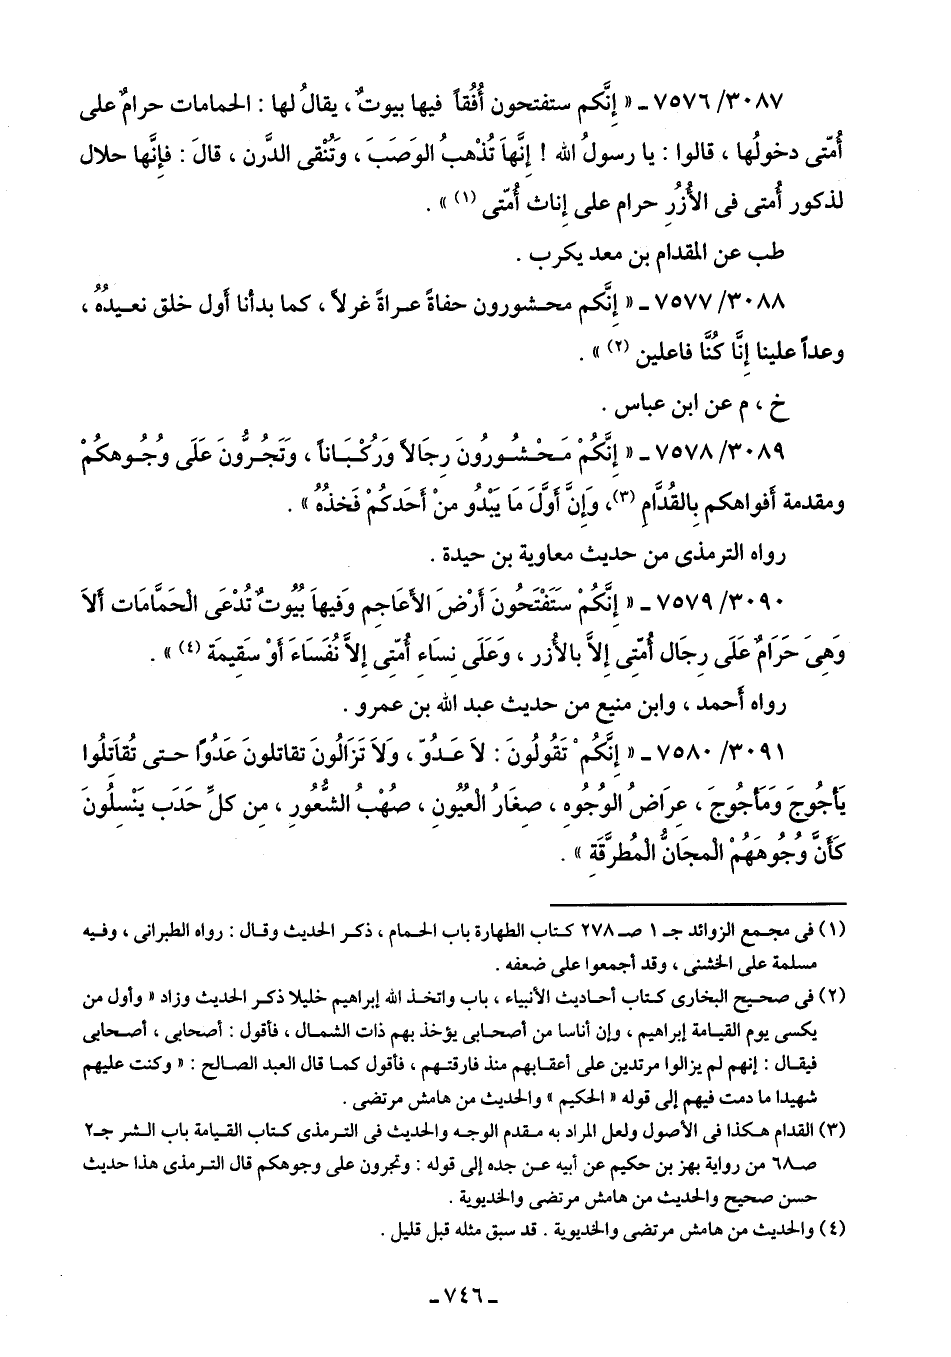 ٧٥٧٦/٣٠٨٧ ـ « إِنَّكم ستفتحون أُفُقاً فيها بيوتٌ ، يقالُ لها : الحمامات حرامٌ على
أُمّتى دخولُها ، قالوا : يا رسولُ الله ! إِنَّهاَ تذْهبُ الوَصَبَ ، وَتُنْقى الدَّرن ، قالَ : فإِنَّها حلال
لذكور أُمتى فى الأُزُرِ حرام على إِناث أُمّتى (١) » .
طب عن المقدام بن معد يكرب .
٧٥٧٧/٣٠٨٨ ـ « إِنَّكم محشورون حفاةً عراةً غرلاً ، كما بدأنا أول خلق نعيدُهُ ،
وعداً علينا إِنَّا كُنَّا فاعلين (٢) » .
خ ، م عن ابن عباس .
٧٥٧٨/٣٠٨٩ ـ « إِنَّكُمْ مَحْشُورُونَ رِجَالاً وَرُكْبَاناً ، وَتَجُرُّونَ عَلَى وُجُوهكُمْ
ومقدمة أفواهكم بِالقُدَّامِ (٣)، وَإِنَّ أَوَّلَ مَا يَبْدُو منْ أَحَدكُمْ فَخذُهُ » .
رواه الترمذى من حديث معاوية بن حيدة .
٧٥٧٩/٣٠٩٠ ـ « إِنَّكُمْ سَتَفْتَحُونَ أَرْضَ الأعَاجِم وَفيهاَ بُيُوتٌ تُدْعَى الْحَمَّامَات أَلاَ
وَهِىَ حَرَامٌ عَلَى رِجَال أُمَّتِى إِلاَّ بالأُزر ، وَعَلَى نِساءِ أُمَّتِى إِلاَّ نُفَسَاءَ أَوْ سقِيمَة (٤) » .
رواه أحمد ، وابن منيع من حديث عبد الله بن عمرو .
٧٥٨٠/٣٠٩١ ـ « إِنَّكُمْ تَقُولُونَ : لاَ عَدُوّ ، وَلاَ تَزَالُونَ تقاتلونَ عَدُوّا حتى تُقاَتلُوا
يَأجُوجَ وَمَأجُوجَ ، عِرَاضُ الوُجُوه ، صغَارُ الْعُيُونِ ، صُهْبُ الشُّعُورِ ، مِن كلِّ حَدَب يَنْسلُونَ
كَأَنَّ وُجُوهَهُمْ الْمجَانُّ الْمُطرَّقَةِ » .
(١) فى مجمع الزوائد جـ ١ صـ ٢٧٨ كتاب الطهارة باب الحمام ، ذكر الحديث وقال : رواه الطبرانى ، وفيه
مسلمة على الخشنى ، وقد أجمعوا على ضعفه .
(٢) فى صحيح البخارى كتاب أحاديث الأنبياء ، باب واتخذ الله إبراهيم خليلا ذكر الحديث وزاد « وأول من
يكسى يوم القيامة إبراهيم ، وإن أناسا من أصحابى يؤخذ بهم ذات الشمال ، فأقول : أصحابى ، أصحابى
فيقال : إنهم لم يزالوا مرتدين على أعقابهم منذ فارقتهم ، فأقول كما قال العبد الصالح : « وكنت عليهم
شهيدا ما دمت فيهم إلى قوله « الحكيم » والحديث من هامش مرتضى .
(٣) القدام هكذا فى الأصول ولعل المراد به مقدم الوجه والحديث فى الترمذى كتاب القيامة باب الشر جـ٢
صـ٦٨ من رواية بهز بن حكيم عن أبيه عن جده إلى قوله : وتجرون على وجوهكم قال الترمذى هذا حديث
حسن صحيح والحديث من هامش مرتضى والخديوية .
(٤) والحديث من هامش مرتضى والخديوية . قد سبق مثله قبل قليل .
ـ ٧٤٦ ـ